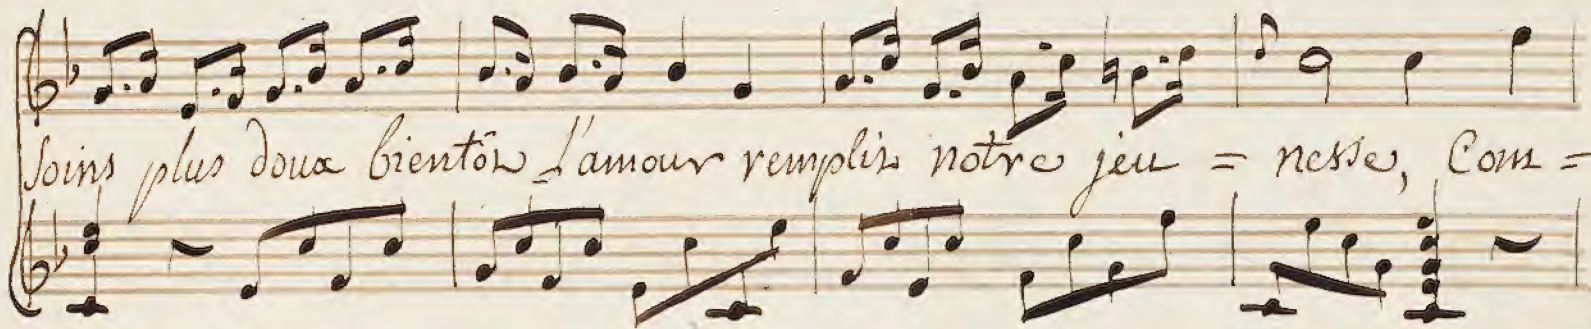 soins plus doux bientôt l'amour remplit notre jeu = nesse, Com =